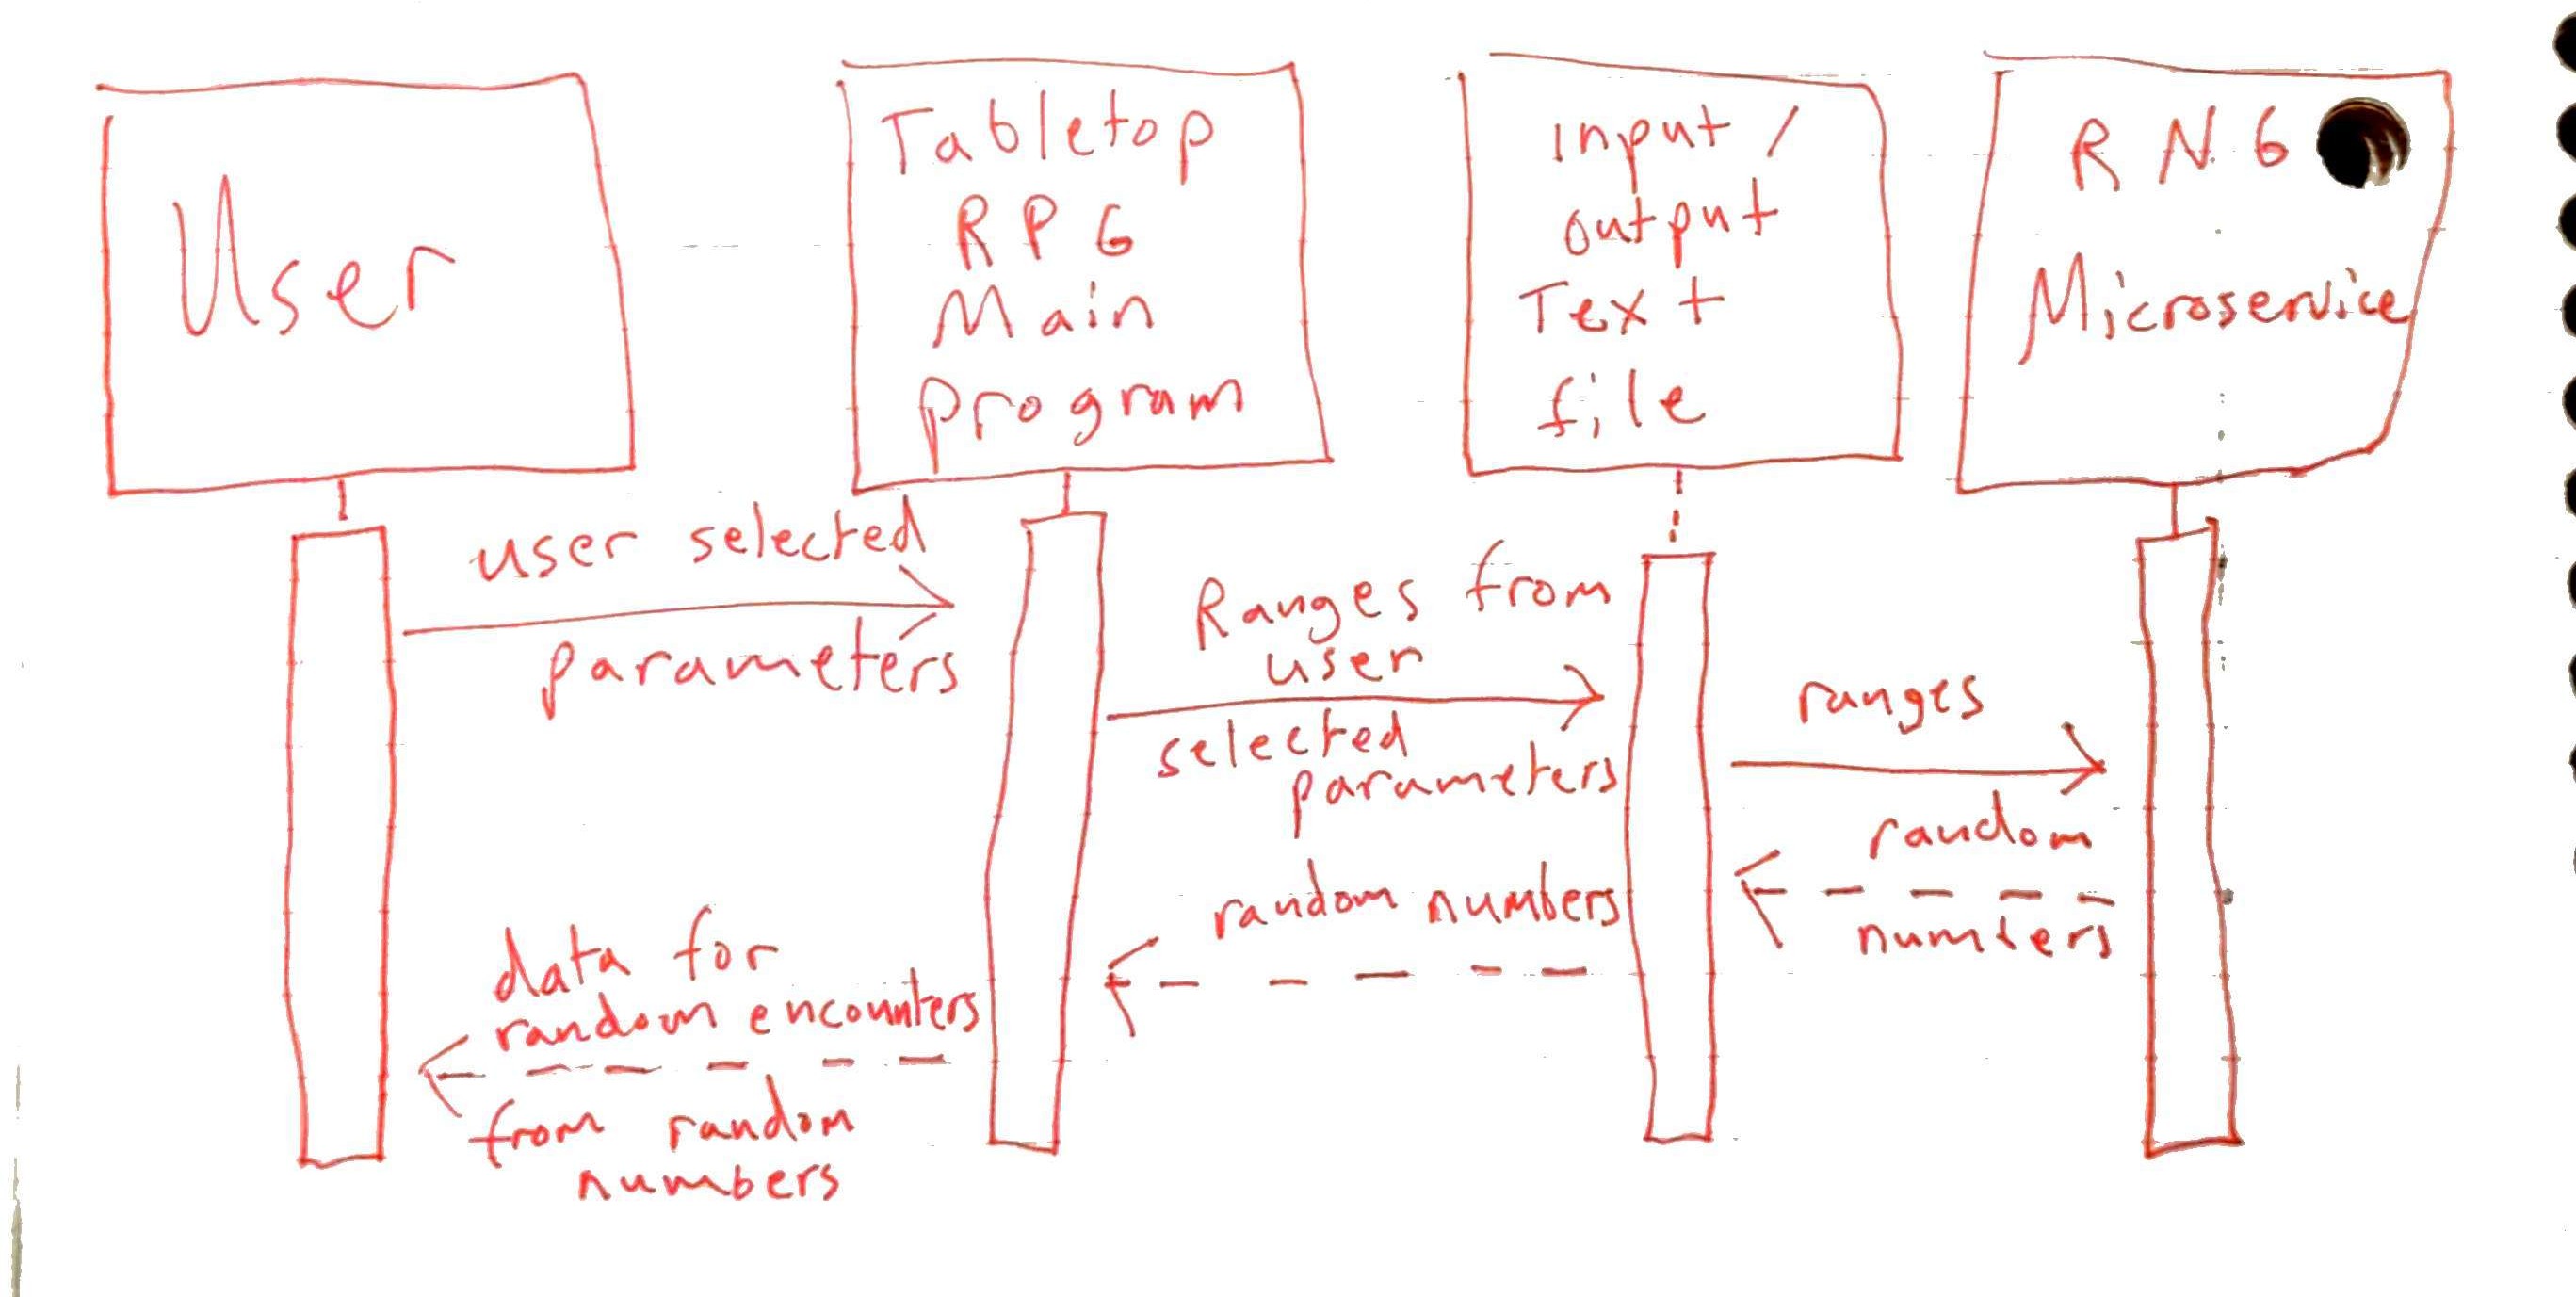 User
Tabletop
RPG
Main
Program
input /
output
Text
file
RNG
Microservice
user selected
parameters
Ranges from
user
selected
parameters
ranges
random
numbers
random numbers
data for
random encounters
from random
numbers